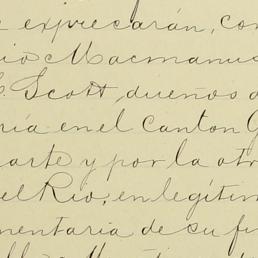 e exprecarán, con
rio Macmanus
C. Scott, dueños d
ría en el canton G
arte y por la otr
el Rio, en legítim
mentaria de su fi